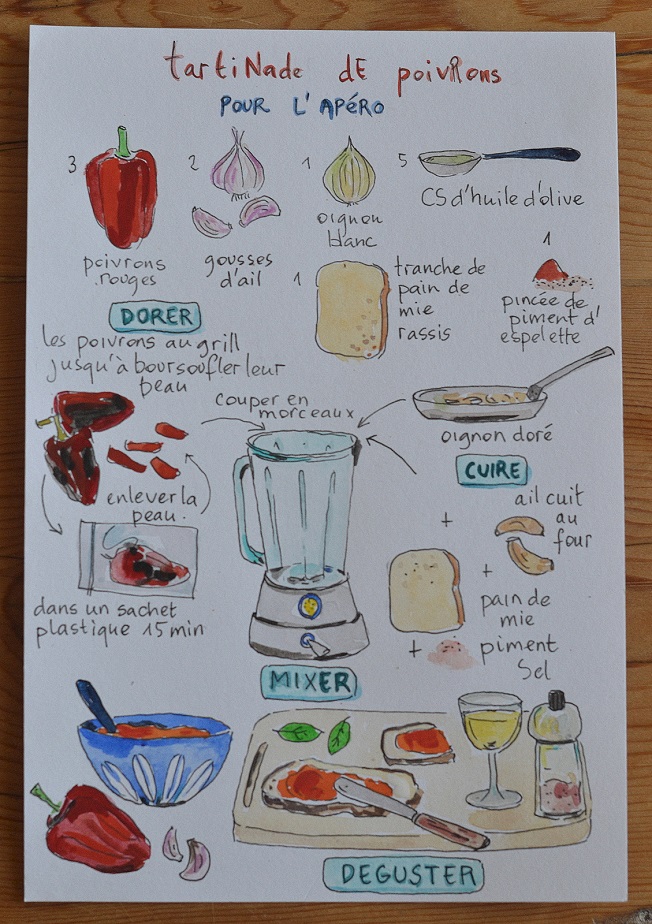 tartiNade dE poivRons
POUR L'APÉRO
3
poivrons
rouges
2
gousses
d'ail
1
oignon
blanc
5
CS d'huile d'olive
1
tranche de
pain de
mie
rassis
1
pincée de
piment d'
espelette
DORER
les poivrons au grill
jusqu'à boursoufler leur
peau
couper en
morceaux
enlever la
peau.
dans un sachet
plastique 15 min
oignon doré
CUIRE
+
ail cuit
au
four
+
pain de
mie
+
piment
Sel
MIXER
DEGUSTER